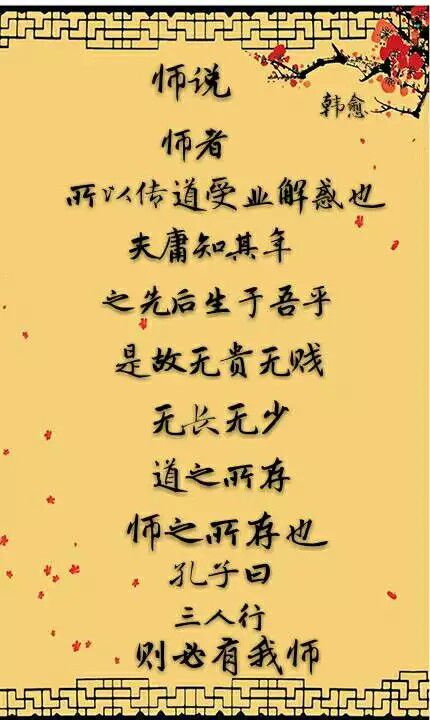 师说
韩愈
师者
所以传道受业解惑也
夫庸知其年
之先后生于吾乎
是故无贵无贱
无长无少
道之所存
师之所存也
孔子曰
三人行
则必有我师